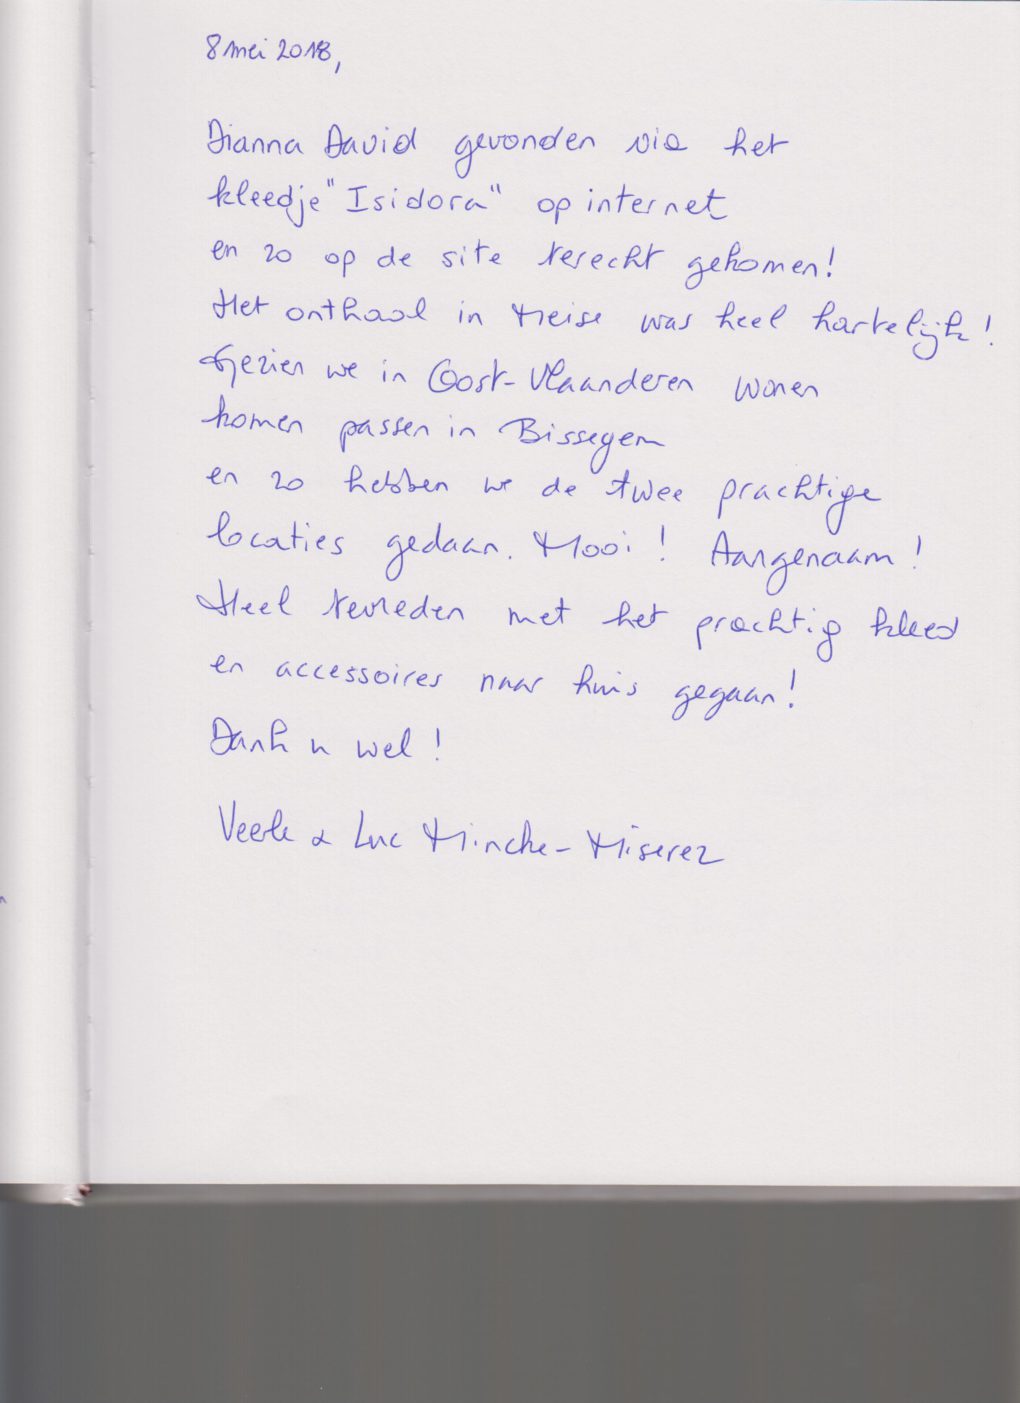 8 mei 2018,
Dianna David gevonden via het
kleedje "Isidora" op internet
en zo op de site terecht gekomen!
Het onthaal in Meise was heel hartelijk!
Gezien we in Oost-Vlaanderen wonen
komen passen in Bissegem
en zo hebben we de twee prachtige
locaties gedaan. Mooi! Aangenaam!
Heel tevreden met het prachtig kleed
en accessoires naar huis gegaan!
Dank u wel!
Veerle & Luc Mincke-Miserez